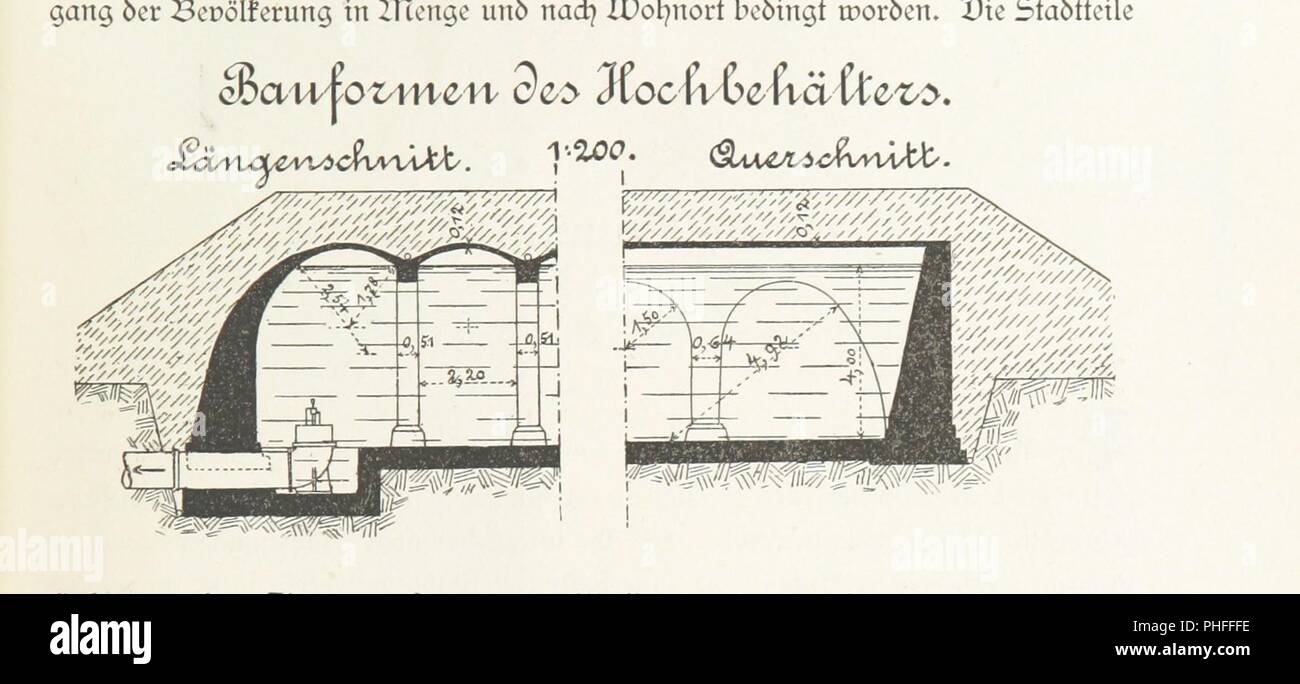 gang der Bevölkerung in Menge und nach Wohnort bedingt worden. Die Stadtteile
Bauformen des Hochbehälters.
Längenschnitt. 1:200. Querschnitt.
0,12
0,12
2,54
1,28
0,51
0,51
2,20
1,50
0,64
4,92
4,00
alamy
alamy
alamy
alamy
alamy
alamy
a
a
a
alamy
Image ID: PHFFFE
www.alamy.com